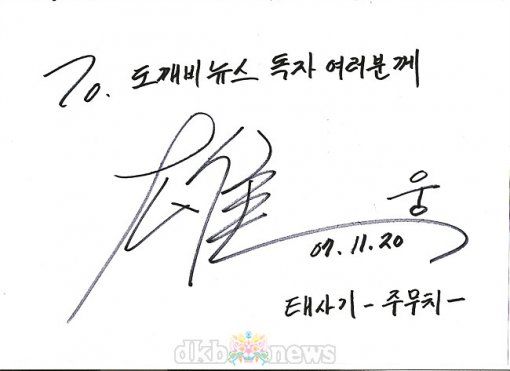 To. 도깨비뉴스 독자 여러분께
雄 웅
07.11.20
태사기 - 주무치 -
dkbnews